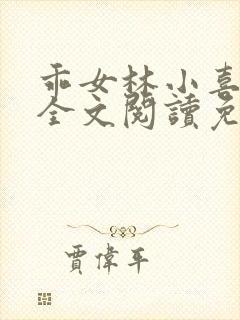 乖女林小喜
全文閱讀免
賈偉平